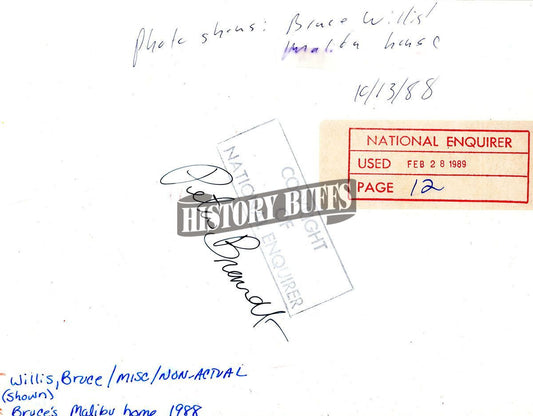 Photo shows: Bruce Willis'
Malibu house
10/13/88
NATIONAL ENQUIRER
USED FEB 28 1989
PAGE 12
COPYRIGHT
NATIONAL ENQUIRER
OF
HISTORY BUFFS
Brandt
Willis, Bruce / MISC / NON-ACTUAL
(shown)
Bruce's Malibu home 1988